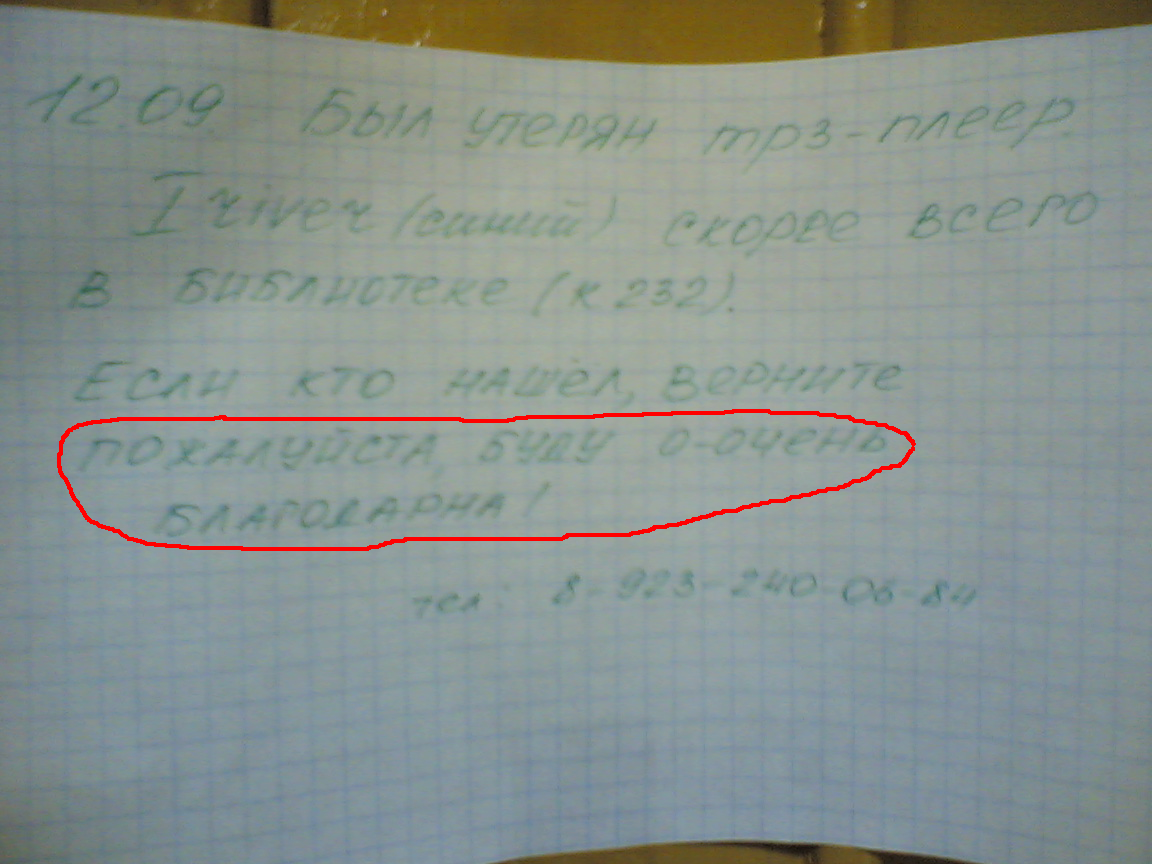 12.09 Был утерян mp3-плеер.
Iriver (синий) скорее всего
в библиотеке (к 232).
Если кто нашёл, верните
пожалуйста, буду о-очень
благодарна!
тел: 8-923-240-06-84